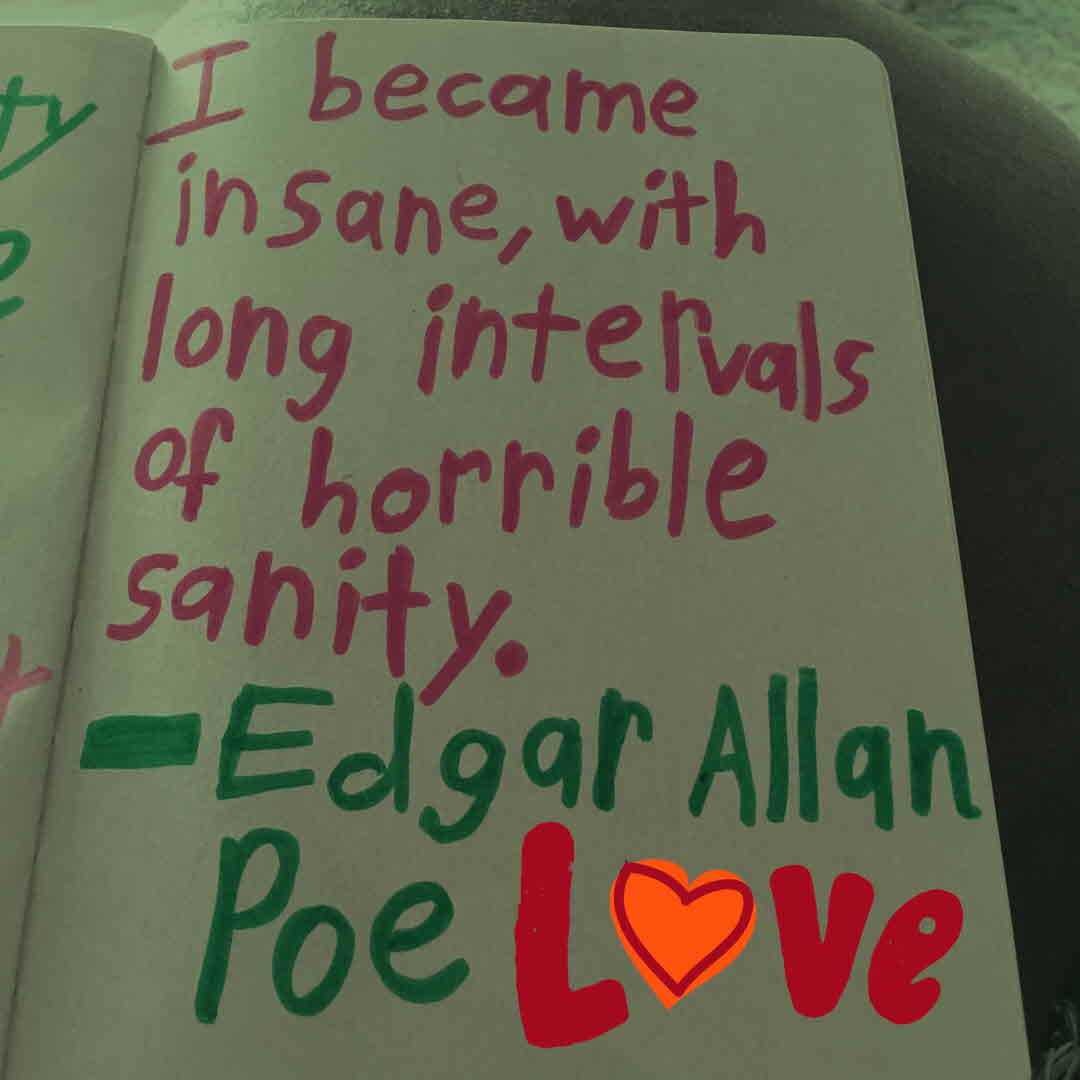 I became
insane, with
long intervals
of horrible
sanity.
-Edgar Allan
Poe Love